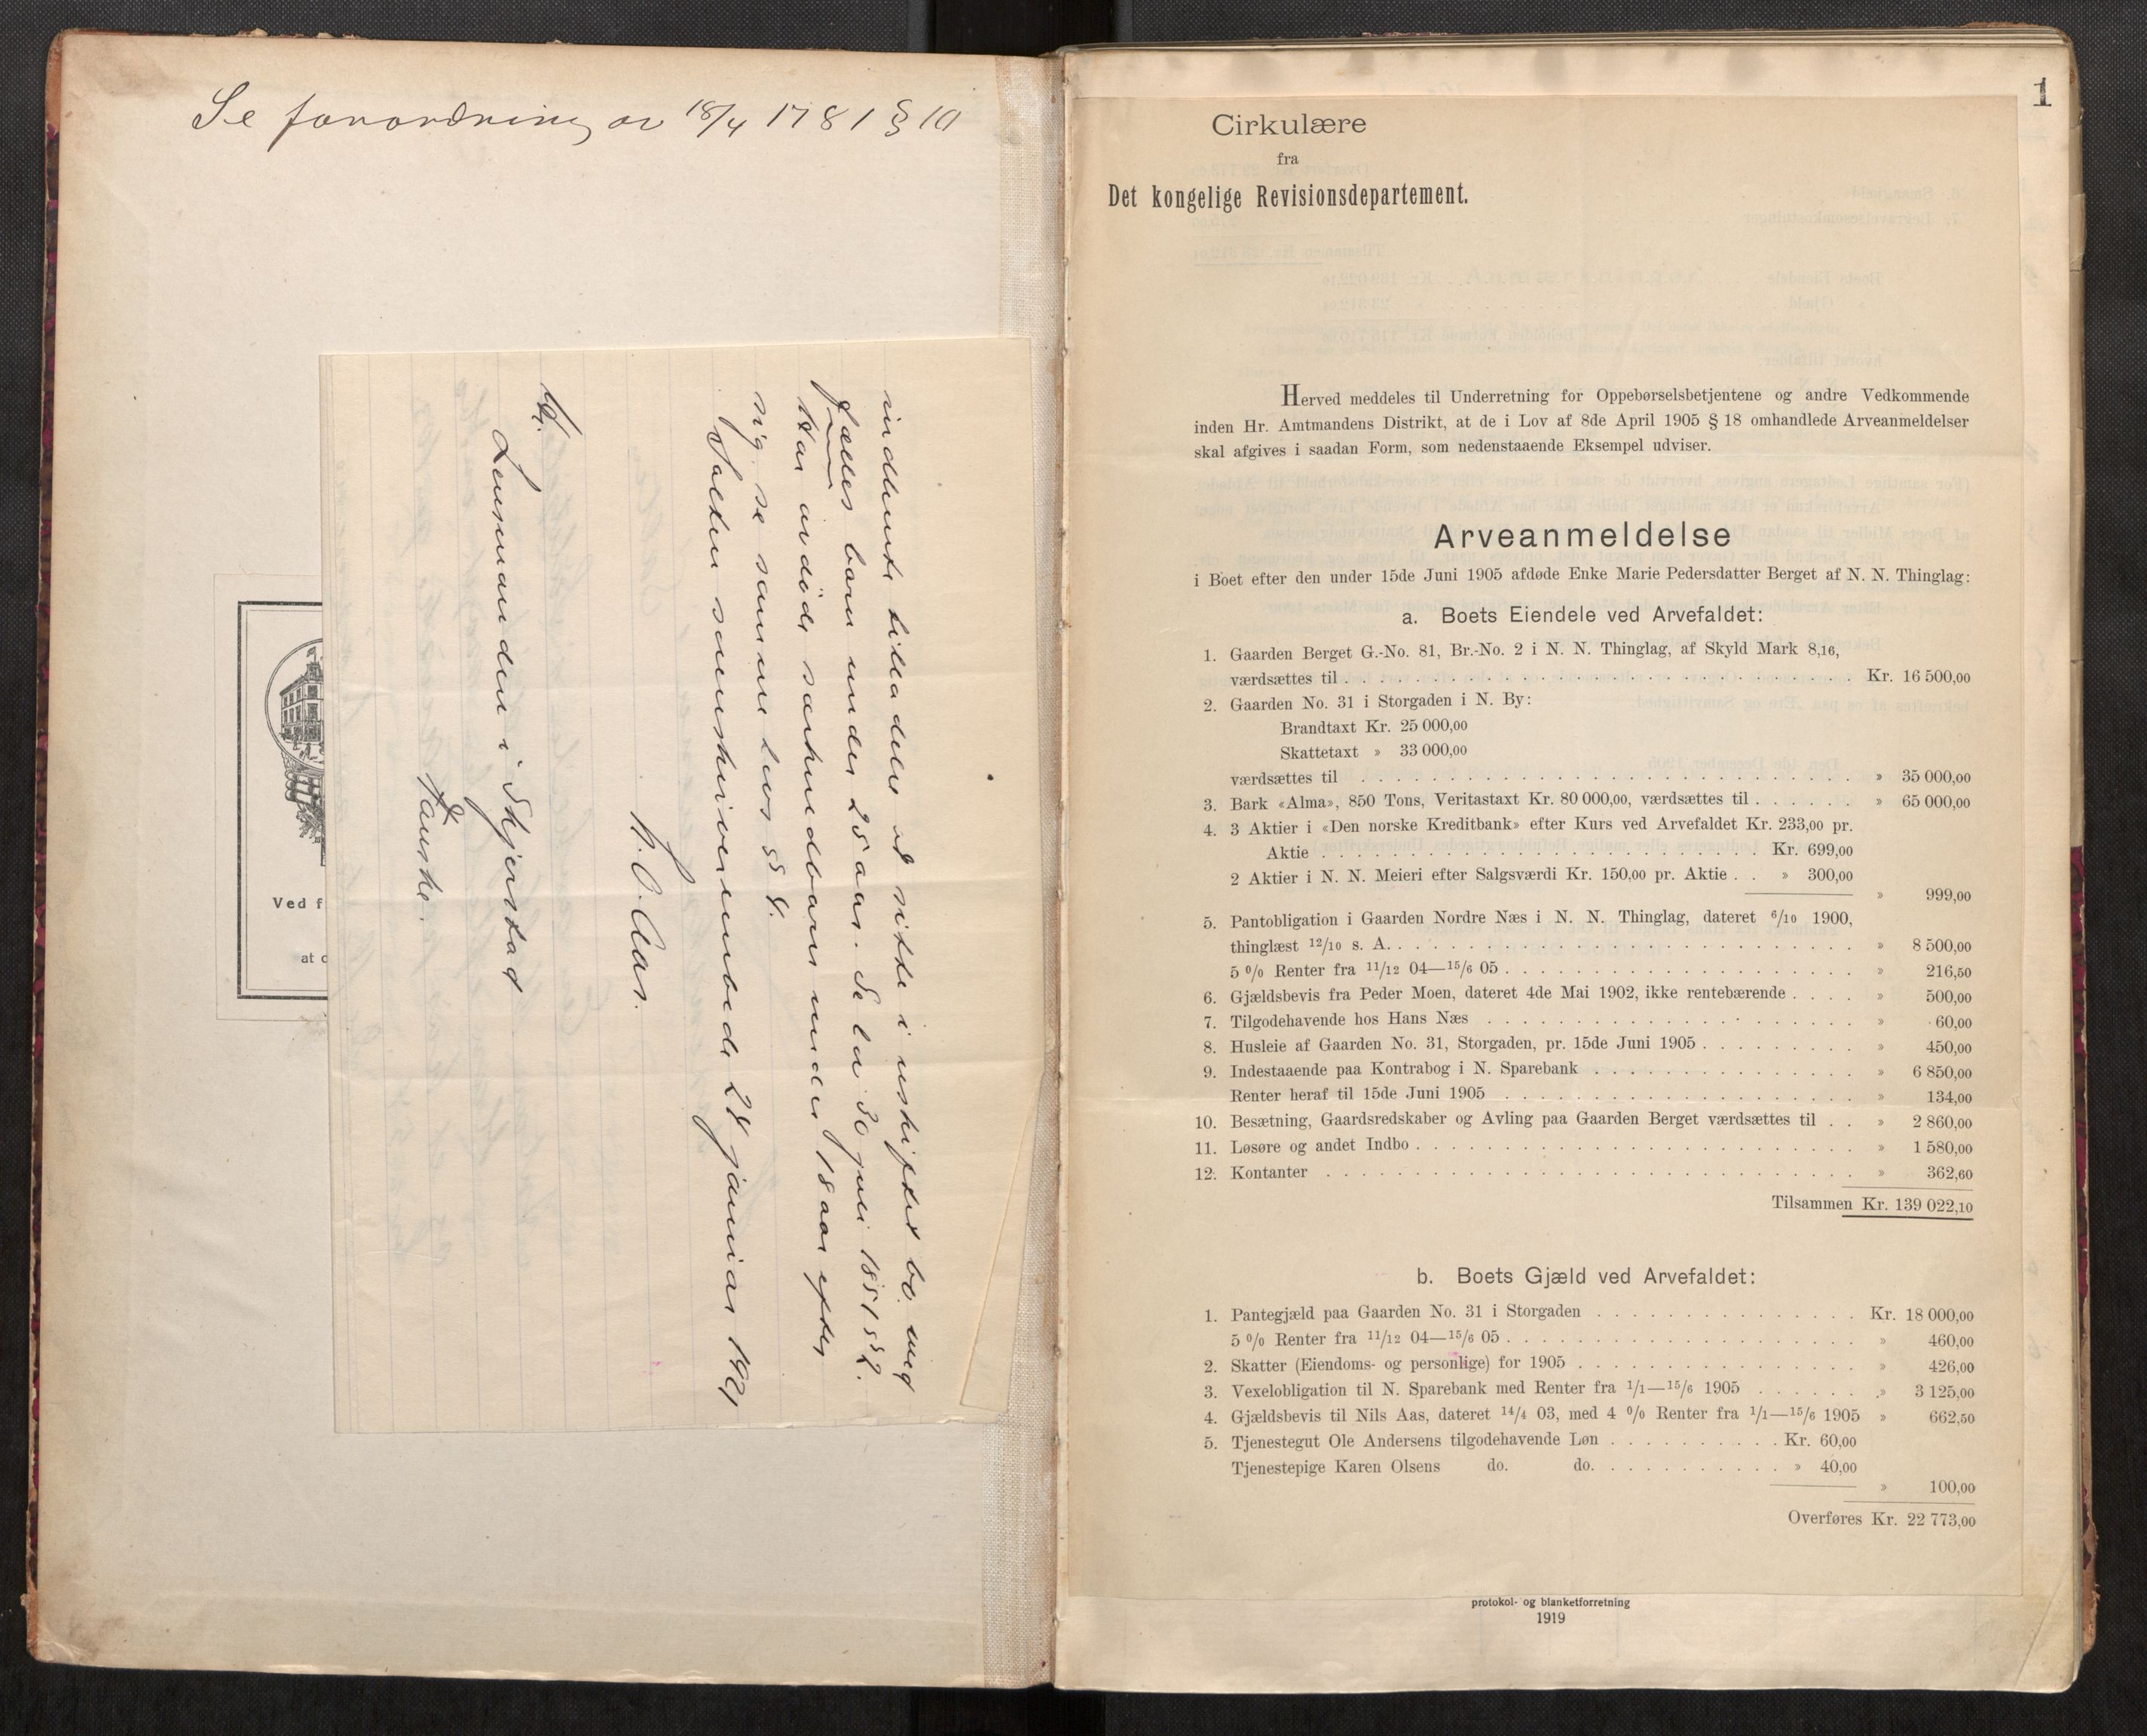 Se forordning av 18/4 1781 § 10
inddente tilladelse at sitte i uskiftet bo med
fælles barn under 25 aar. Se lov 30 juli 1851 § 2.
Har avdøde særkuldbarn under 18 aar efter
sig se samme lov § 4.
Salten sorenskriverembede 24 januar 1921
N. O. Aas.
Til
Lensmanden i Skjerstad
Fauske.
Ved f
at d
1
Cirkulære
fra
Det kongelige Revisionsdepartement.
Herved meddeles til Underretning for Oppebørselsbetjentene og andre Vedkommende
inden Hr. Amtmandens Distrikt, at de i Lov af 8de April 1905 § 18 omhandlede Arveanmeldelser
skal afgives i saadan Form, som nedenstaaende Eksempel udviser.
Arveanmeldelse
i Boet efter den under 15de Juni 1905 afdøde Enke Marie Pedersdatter Berget af N. N. Thinglag:
a. Boets Eiendele ved Arvefaldet:
1. Gaarden Berget G.-No. 81, Br.-No. 2 i N. N. Thinglag, af Skyld Mark 8,16,
værdsættes til . . . Kr. 16 500,00
2. Gaarden No. 31 i Storgaden i N. By:
Brandtaxt Kr. 25 000,00
Skattetaxt » 33 000,00
værdsættes til . . . » 35 000,00
3. Bark «Alma», 850 Tons, Veritastaxt Kr. 80 000,00, værdsættes til . . . » 65 000,00
4. 3 Aktier i «Den norske Kreditbank» efter Kurs ved Arvefaldet Kr. 233,00 pr.
Aktie . . . Kr. 699,00
2 Aktier i N. N. Meieri efter Salgsværdi Kr. 150,00 pr. Aktie . . » 300,00
» 999,00
5. Pantobligation i Gaarden Nordre Næs i N. N. Thinglag, dateret 6/10 1900,
thinglæst 12/10 s. A. . . . » 8 500,00
5 % Renter fra 11/12 04—15/6 05 . . . » 216,50
6. Gjældsbevis fra Peder Moen, dateret 4de Mai 1902, ikke rentebærende . . . . » 500,00
7. Tilgodehavende hos Hans Næs . . . » 60,00
8. Husleie af Gaarden No. 31, Storgaden, pr. 15de Juni 1905 . . . » 450,00
9. Indestaaende paa Kontrabog i N. Sparebank . . . » 6 850,00
Renter heraf til 15de Juni 1905 . . . » 134,00
10. Besætning, Gaardsredskaber og Avling paa Gaarden Berget værdsættes til . . » 2 860,00
11. Løsøre og andet Indbo . . . » 1 580,00
12. Kontanter . . . » 362,60
Tilsammen Kr. 139 022,10
b. Boets Gjæld ved Arvefaldet:
1. Pantegjæld paa Gaarden No. 31 i Storgaden . . . Kr. 18 000,00
5 % Renter fra 11/12 04—15/6 05 . . . » 460,00
2. Skatter (Eiendoms- og personlige) for 1905 . . . » 426,00
3. Vexelobligation til N. Sparebank med Renter fra 1/1—15/6 1905 . . . » 3 125,00
4. Gjældsbevis til Nils Aas, dateret 14/4 03, med 4 % Renter fra 1/1—15/6 1905 » 662,50
5. Tjenestegut Ole Andersens tilgodehavende Løn . . . Kr. 60,00
Tjenestepige Karen Olsens do. do. . . . » 40,00
» 100,00
Overføres Kr. 22 773,00
protokol- og blanketforretning
1919